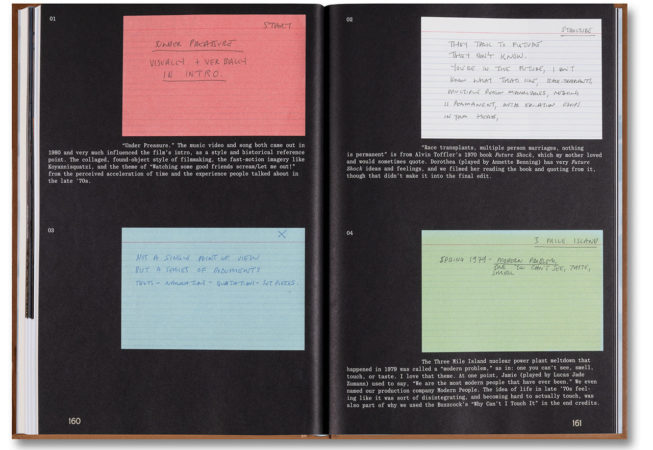 01
START
UNDER PRESSURE
VISUALLY + VERBALLY
IN INTRO.
"Under Pressure." The music video and song both came out in
1980 and very much influenced the film's intro, as a style and historical reference
point. The collaged, found-object style of filmmaking, the fast-motion imagery like
Koyaanisqatsi, and the theme of "Watching some good friends scream/Let me out!"
from the perceived acceleration of time and the experience people talked about in
the late '70s.
03
X
NOT A SINGLE POINT OF VIEW
BUT A SERIES OF DOCUMENTS
TEXTS - NARRATION - QUOTATION - SET PIECES.
160
02
STRUCTURE
THEY TALK TO FUTURE
THEY DON'T KNOW.
YOU'RE IN THE FUTURE, I DON'T
KNOW WHAT THAT'S LIKE, RACE TRANSPLANTS,
MULTIPLE PERSON MARRIAGES, NOTHING
IS PERMANENT,
IN YOUR HEAD,
"Race transplants, multiple person marriages, nothing
is permanent" is from Alvin Toffler's 1970 book Future Shock, which my mother loved
and would sometimes quote. Dorothea (played by Annette Benning) has very Future
Shock ideas and feelings, and we filmed her reading the book and quoting from it,
though that didn't make it into the final edit.
04
3 MILE ISLAND
SPRING 1979 - MODERN PROBLEM
ONE YOU CAN'T SEE, TASTE,
SMELL
The Three Mile Island nuclear power plant meltdown that
happened in 1979 was called a "modern problem," as in: one you can't see, smell,
touch, or taste. I love that theme. At one point, Jamie (played by Lucas Jade
Zumann) used to say, "We are the most modern people that have ever been." We even
named our production company Modern People. The idea of life in late '70s feel-
ing like it was sort of disintegrating, and becoming hard to actually touch, was
also part of why we used the Buzzcock's "Why Can't I Touch It" in the end credits.
161